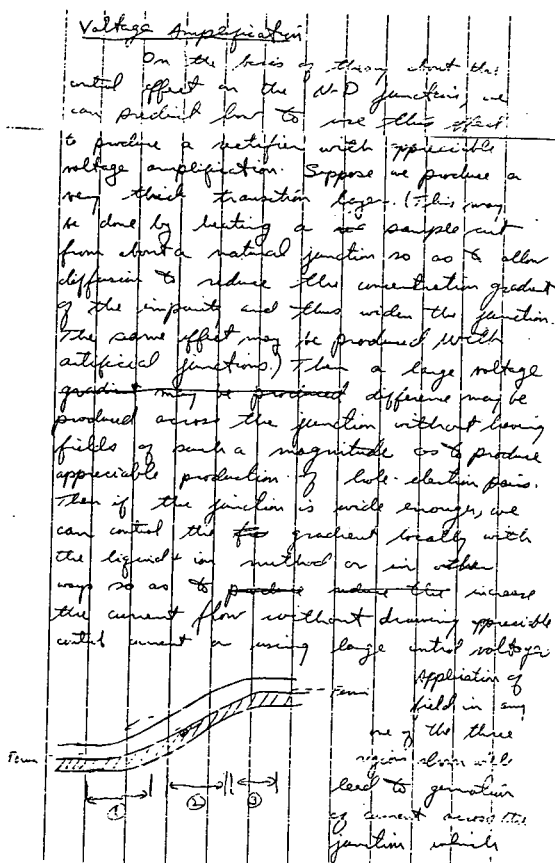 Voltage Amplification
On the basis of theory about the
control effect on the N-P junction, we
can predict how to use this effect
to produce a rectifier with appreciable
voltage amplification. Suppose we produce a
very thick transition layer. (This may
be done by heating a sample cut
from about a natural junction so as to allow
diffusion to reduce the concentration gradient
of the impurity and thus widen the junction.
The same effect may be produced with
artificial junctions.) Then a large voltage
gradient may be produced difference may be
produced across the junction without having
fields of such a magnitude as to produce
appreciable production of hole-electron pairs.
Then if the junction is wide enough, we
can control the gradient locally with
the liquid-ion method or in other
ways so as to produce reduce the increase
the current flow without drawing appreciable
control current or using large control voltages
Application of
Fermi
field in any
one of the three
regions shown will
Fermi
lead to
of current across the
① ② ③
junction which